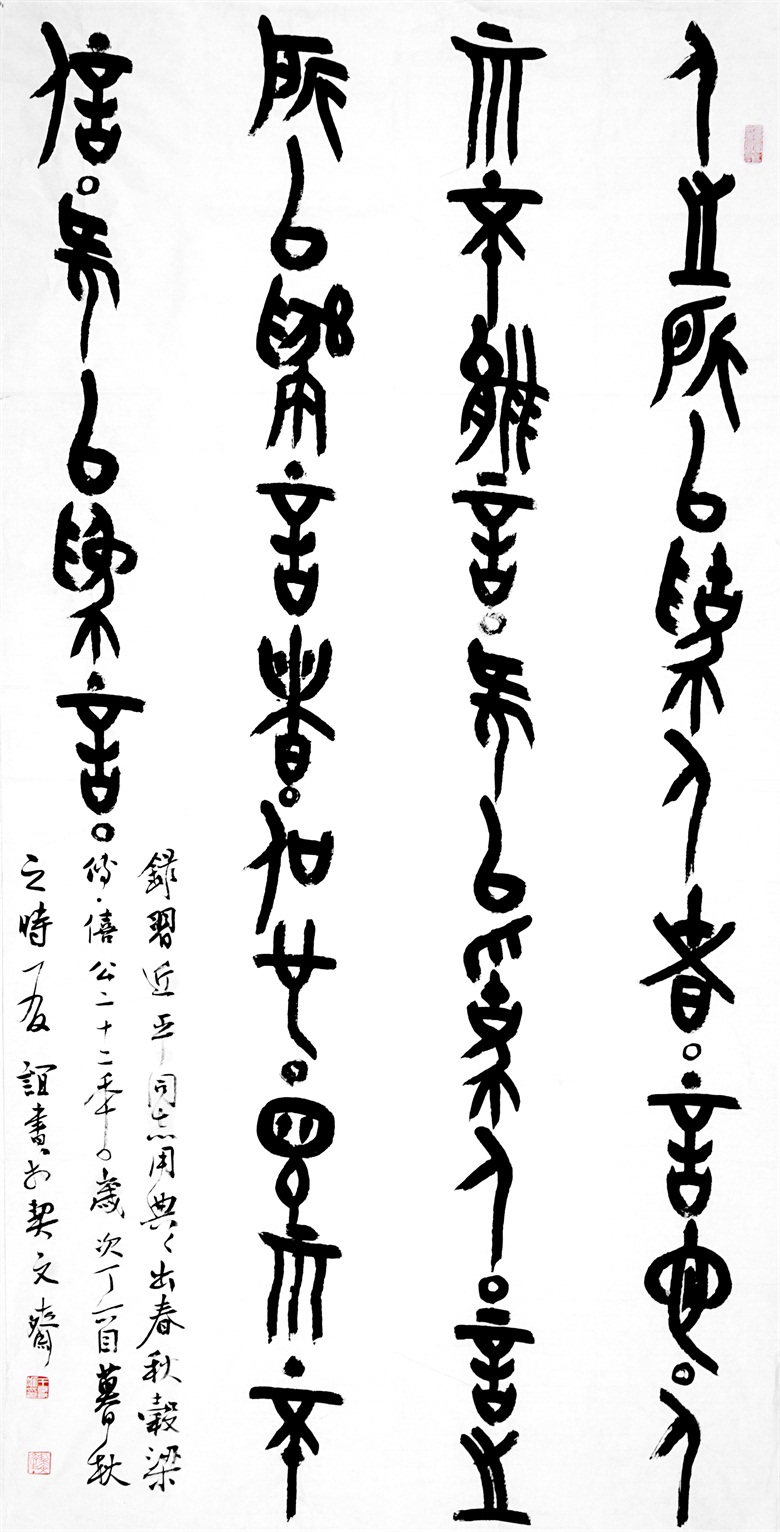 人之所以為人者。言也。人
而不能言。何以為人。言之
所以為言者。信也。言而不
信。何以為言。
錄習近平同志用典々出春秋穀梁
傳·僖公二十二年。歲次丁酉暮秋
之時友誼書於契文齋